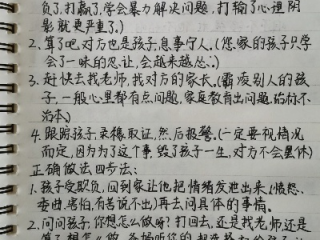 负了.打赢了,学会暴力解决问题,打输了心理阴
影就更严重了.)
2.算了吧,对方也是孩子,息事宁人.(您家的孩子只学
会了一味的忍让,会越来越怂.)
3.赶快去找老师,找对方的家长.(霸凌别人的孩
子,一般心里都有点问题,家庭教育出问题,治标不
治本)
4.跟踪孩子,录像取证,然后报警.(一定要视情况
而定,因为为了这个事,毁了孩子一生,对方不会罢休)
正确做法,四步法:
1.孩子受欺负,回到家让他把情绪发泄出来(愤怒、
委曲,堵怕,有苦说不出)再去问具体的事情.
2.问问孩子,你想怎么做呀?打回去,还是找老师还是